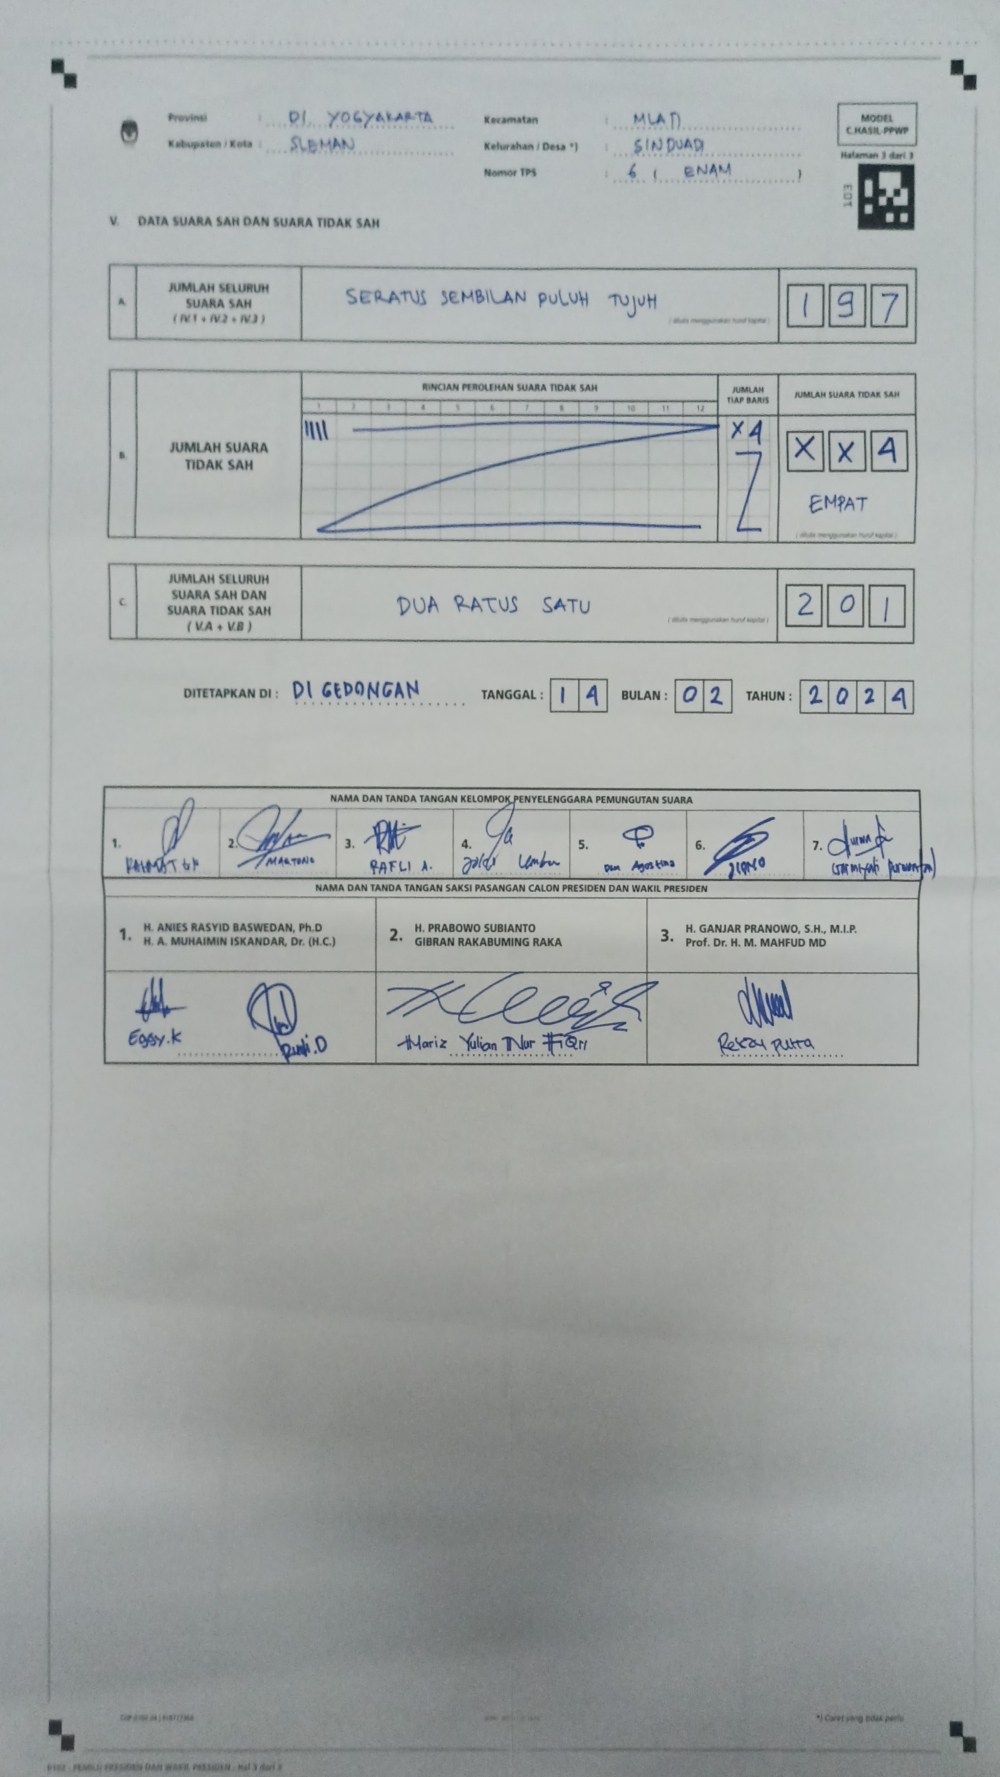 Provinsi : DI. YOGYAKARTA
Kabupaten / Kota : SLEMAN
Kecamatan : MLATI
Kelurahan / Desa *) : SINDUADI
Nomor TPS : 6 ( ENAM )
MODEL
C.HASIL-PPWP
Halaman 3 dari 3
103
V. DATA SUARA SAH DAN SUARA TIDAK SAH
A. JUMLAH SELURUH
SUARA SAH
( IV.1 + IV.2 + IV.3 )
SERATUS SEMBILAN PULUH TUJUH
( ditulis menggunakan huruf kapital )
1 9 7
RINCIAN PEROLEHAN SUARA TIDAK SAH
1 2 3 4 5 6 7 8 9 10 11 12
JUMLAH
TIAP BARIS
JUMLAH SUARA TIDAK SAH
B. JUMLAH SUARA
TIDAK SAH
IIII
X 4
X X 4
EMPAT
( ditulis menggunakan huruf kapital )
C. JUMLAH SELURUH
SUARA SAH DAN
SUARA TIDAK SAH
( V.A + V.B )
DUA RATUS SATU
( ditulis menggunakan huruf kapital )
2 0 1
DITETAPKAN DI : DI GEDONGAN TANGGAL : 1 4 BULAN : 0 2 TAHUN : 2 0 2 4
NAMA DAN TANDA TANGAN KELOMPOK PENYELENGGARA PEMUNGUTAN SUARA
1. 2. MARTONO 3. RAFLI A. 4. 5. Agustina 6. 7.
NAMA DAN TANDA TANGAN SAKSI PASANGAN CALON PRESIDEN DAN WAKIL PRESIDEN
1. H. ANIES RASYID BASWEDAN, Ph.D
H. A. MUHAIMIN ISKANDAR, Dr. (H.C.)
2. H. PRABOWO SUBIANTO
GIBRAN RAKABUMING RAKA
3. H. GANJAR PRANOWO, S.H., M.I.P.
Prof. Dr. H. M. MAHFUD MD
Eggy.K
Rudi.D
Hariz Yulian Nur Fiqri
Rekzy Putra
*) Coret yang tidak perlu